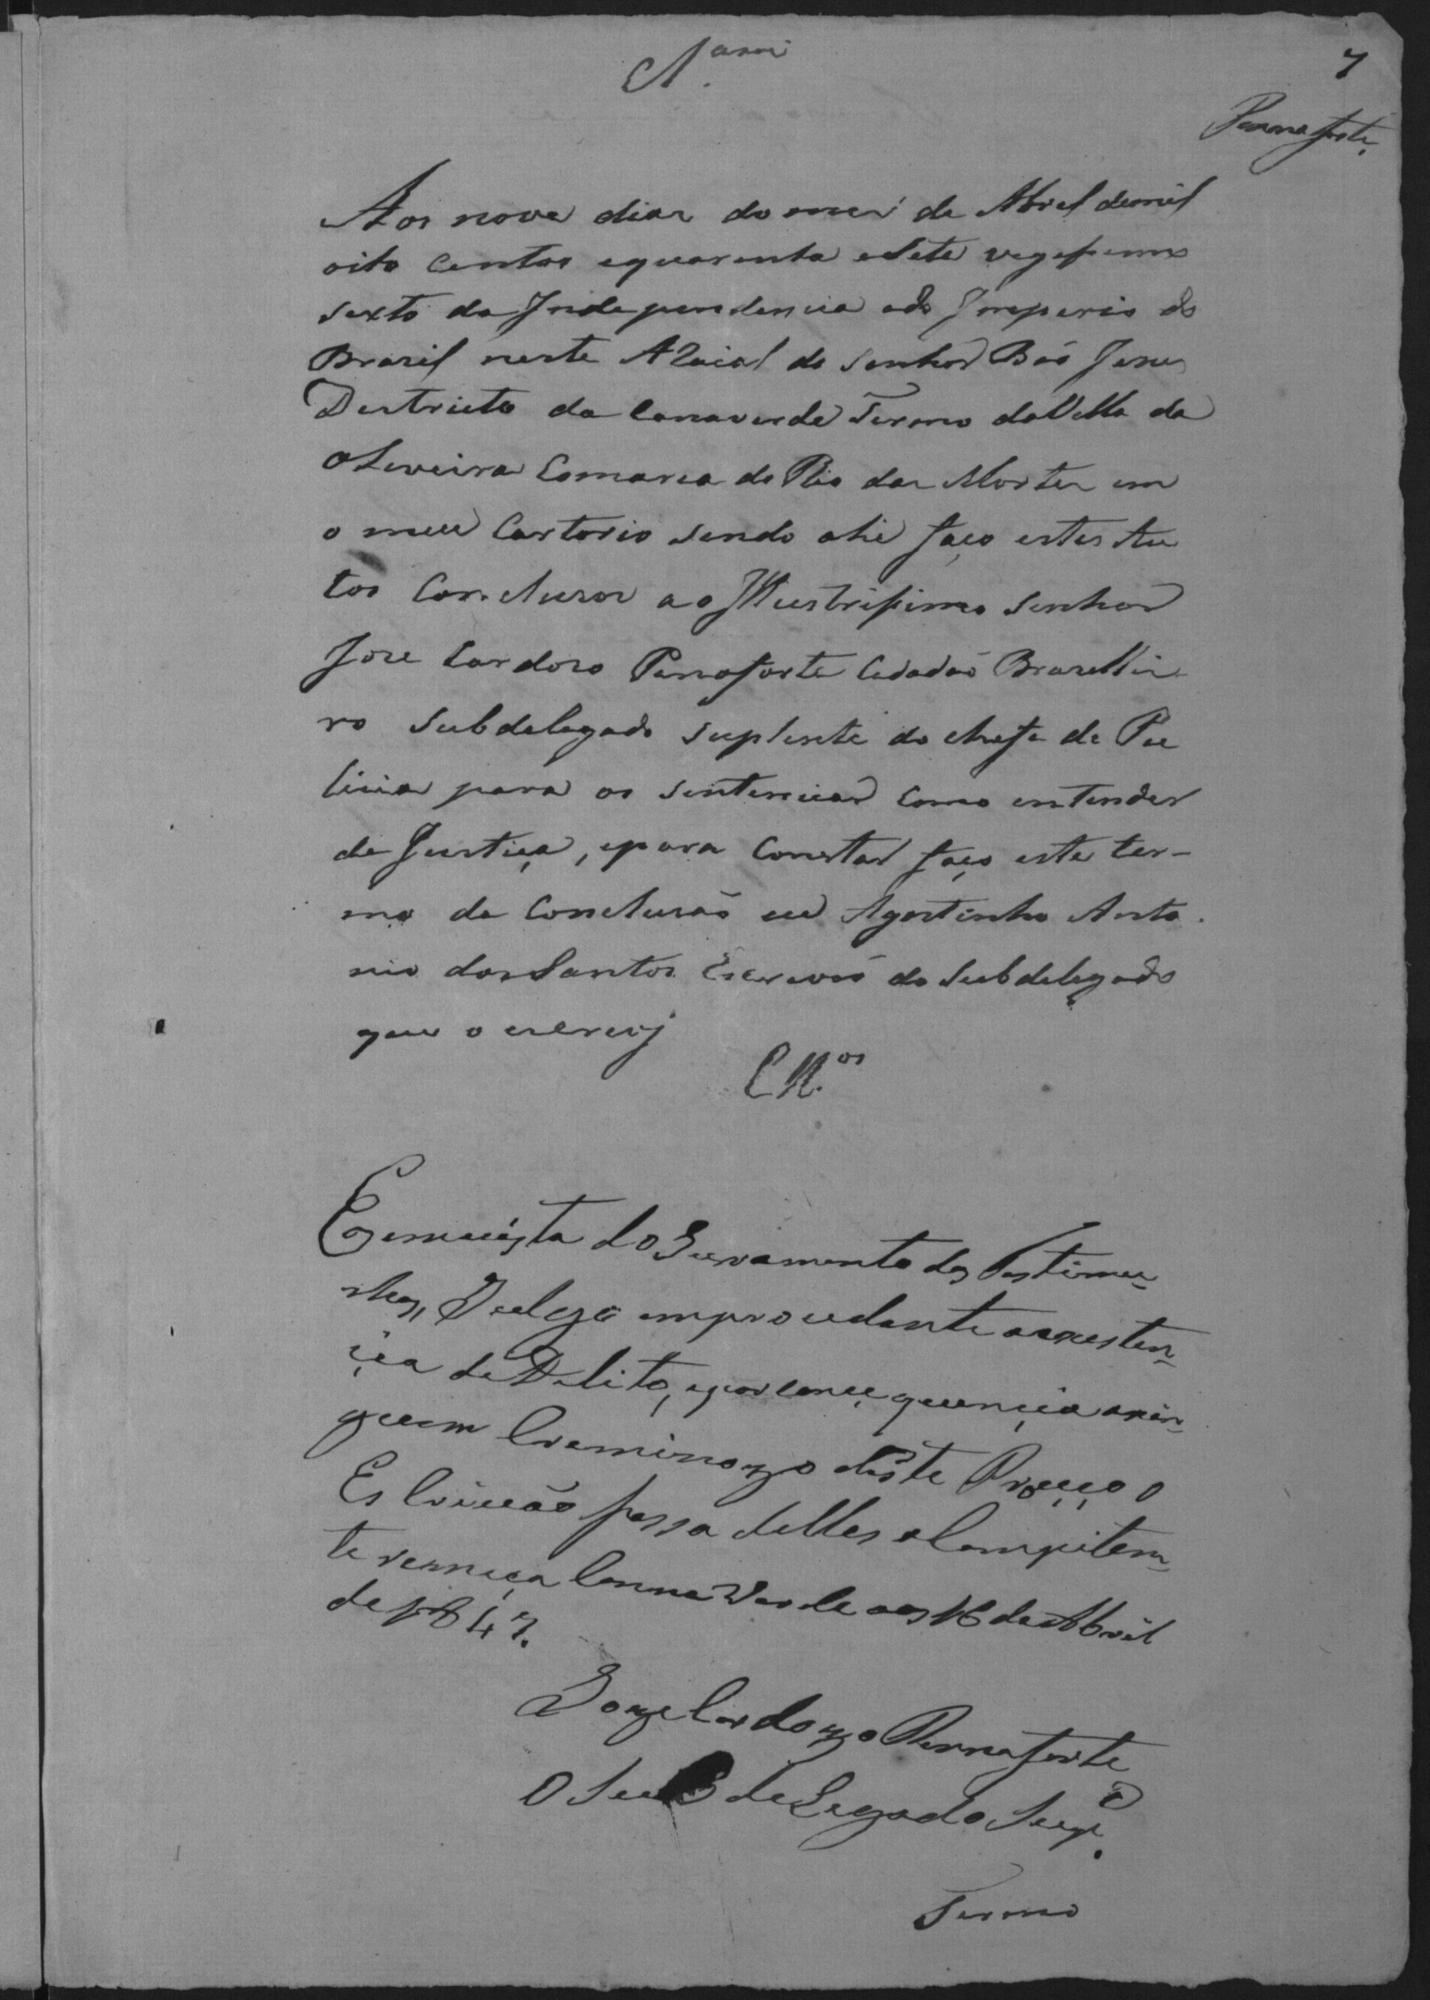 7
Pennaforte
Aos nove dias do mes de Abril demil
oito centos equarenta esete vegessimo
sexto da Independencia edo Imperio do
Brazil neste Araial do Senhor Bão Jesus
Destricto da Canaverde Termo daVilla da
Oliveira Comarca do Rio das Mortes em
o meu Cartorio sendo ahi faço estes Au
tos Concluzos ao Illustrissimo Senhor
Joze Cardozo Penaforte Cidadão Brazillei
ro Subdelegado suplente do chefe de Pu
licia para os sentenciar como entender
de Justiça, epara Constar faço este ter-
mo de Concluzão eu Agostinho Anto
nio dos Santos Escrivão do Subdelegado
que o escrevj
Cll.os
Eem vista do Juramento das Testimu
nhas, Julgo emprocedente aexesten
çia do Delito, epor conçequençia anin
guem Creminozo deste Proçeço o
Escrivão passa delles aCompitem
te remeça Canna Verde aos 16 de Abril
de 1847.
Joze Cardozo Pennaforte
O SubdeLegado Sup.e
Termo